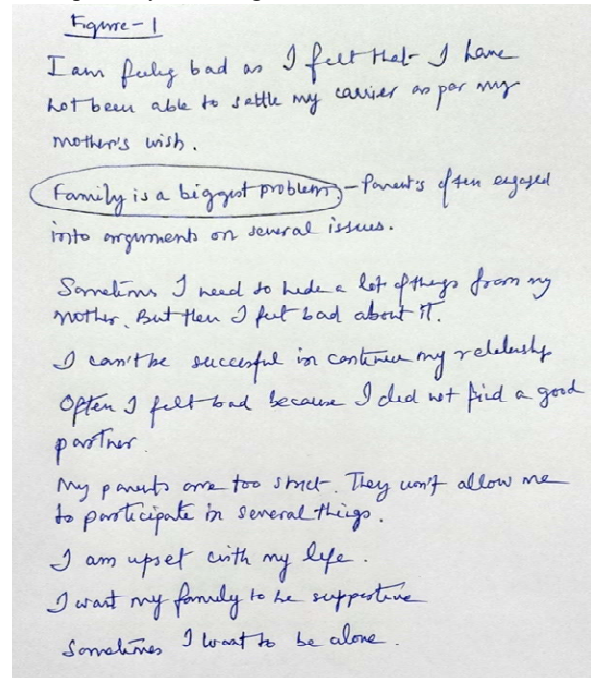 Figure-1
I am feeling bad as I felt that I have
not been able to settle my carrier as par my
mother's wish.
Family is a biggest problem - Parent's often engaged
into arguments on several issues.
Sometimes I need to hide a lot of things from my
mother. But then I felt bad about it.
I can't be succesful in continue my relationship
Often I felt bad because I did not find a good
partner
My parents are too strict. They won't allow me
to participate in several things.
I am upset with my life.
I want my family to be supportive
Sometimes I want to be alone.